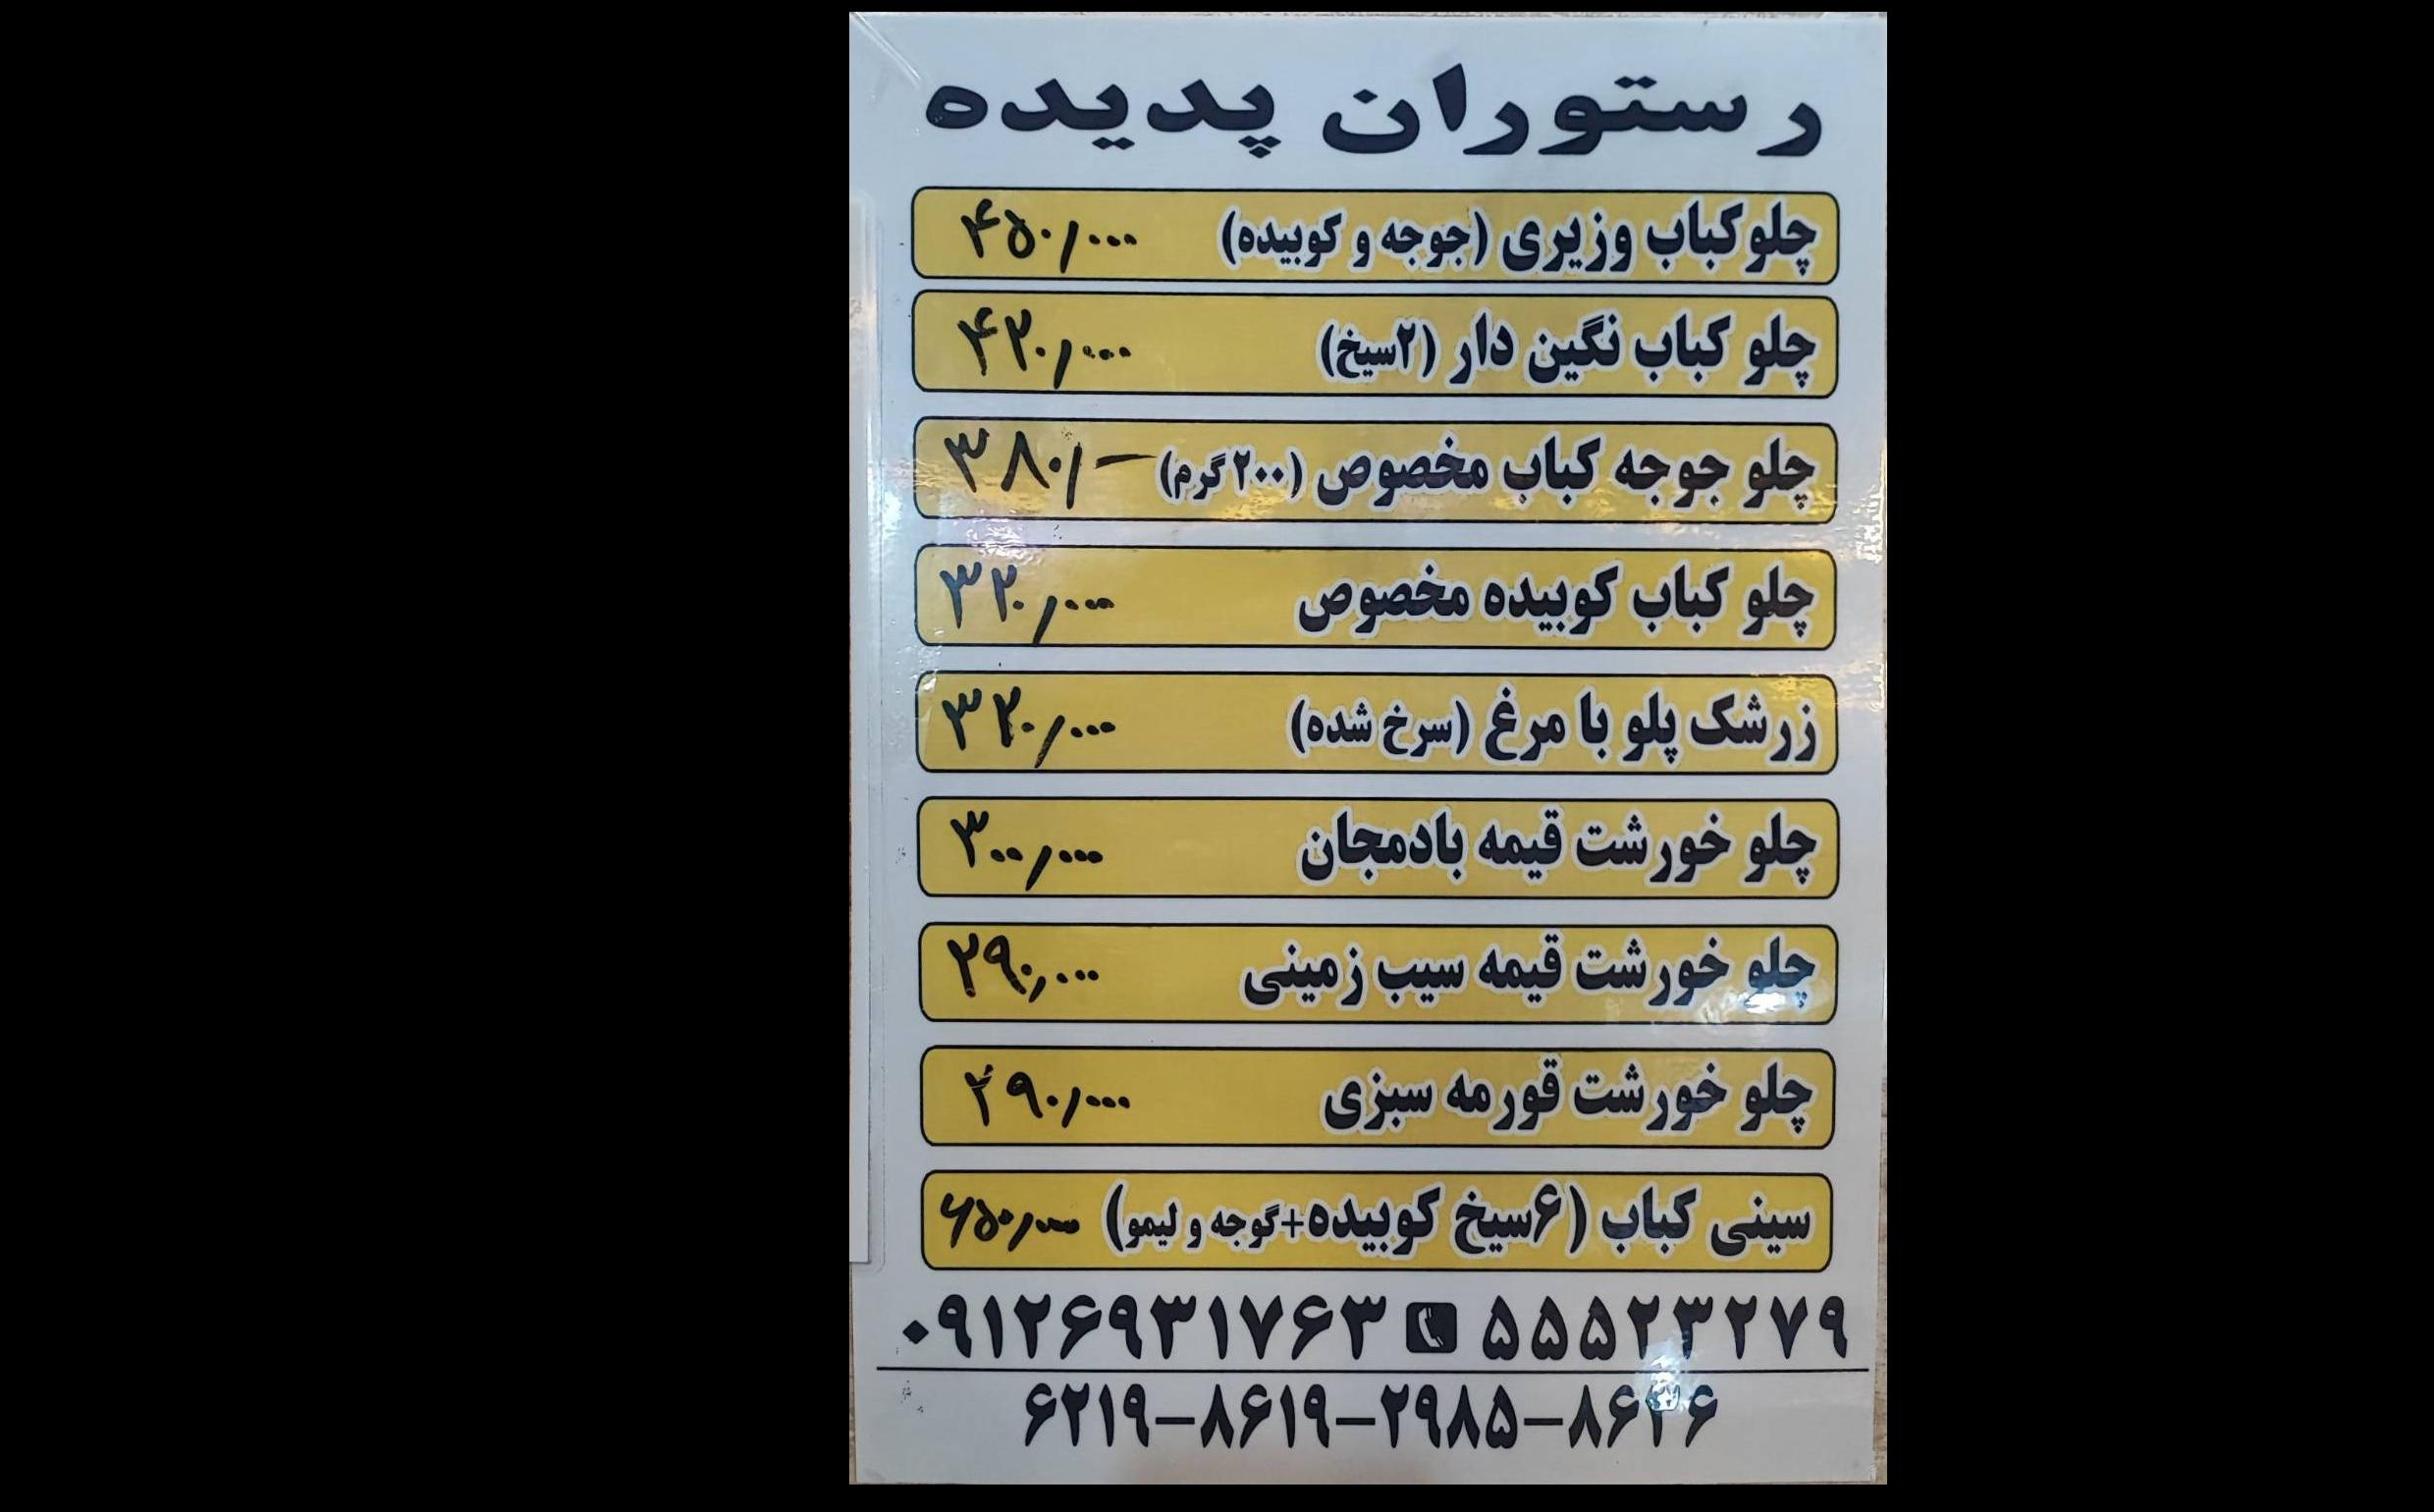 رستوران پدیده
چلوکباب وزیری (جوجه و کوبیده) ۴۵۰/۰۰۰
چلو کباب نگین دار (۲سیخ) ۴۲۰/۰۰۰
چلو جوجه کباب مخصوص (۲۰۰ گرم) ۳۸۰/-
چلو کباب کوبیده مخصوص ۳۲۰/۰۰۰
زرشک پلو با مرغ (سرخ شده) ۳۲۰/۰۰۰
چلو خورشت قیمه بادمجان ۳۰۰/۰۰۰
چلو خورشت قیمه سیب زمینی ۲۹۰/۰۰۰
چلو خورشت قورمه سبزی ۲۹۰/۰۰۰
سینی کباب (۶سیخ کوبیده+گوجه و لیمو) ۶۵۰/۰۰۰
۰۹۱۲۶۹۳۱۷۶۳ ۵۵۵۲۳۲۷۹
۶۲۱۹-۸۶۱۹-۲۹۸۵-۸۶۲۶